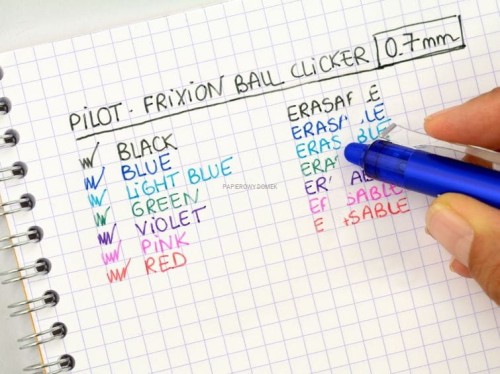 PILOT - FRIXION BALL CLICKER 0.7mm
BLACK
BLUE
LIGHT BLUE
GREEN
VIOLET
PINK
RED
ERASA E
ERASA LE
ERAS BLE
ERA
ER ABL
ER SABLE
E SABLE
PAPIEROWYDOMEK